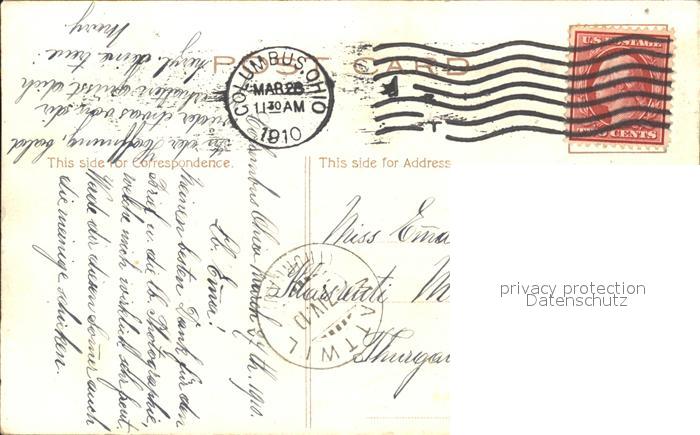 POST CARD
COLUMBUS, OHIO
MAR 28
11 30 AM
1910
U.S. POSTAGE
CENTS
This side for Correspondence.
This side for Address
Miss Ema
Thurgau
ATTWIL
privacy protection
Datenschutz
Columbus Ohio March 27th. 1910.
Lb. Ema!
Meinen besten Dank für den
Brief u. die lb. Photographie,
welche mich wirklich sehr freut.
Werde dir diesen Sommer auch
die meinige schicken.
In der Hoffnung, bald
wieder etwas von dir
zu hören grüsst dich
herzl. deine treue